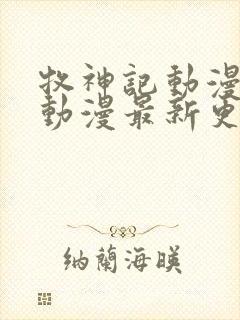 牧神記動漫
動漫最新更
納蘭海暎